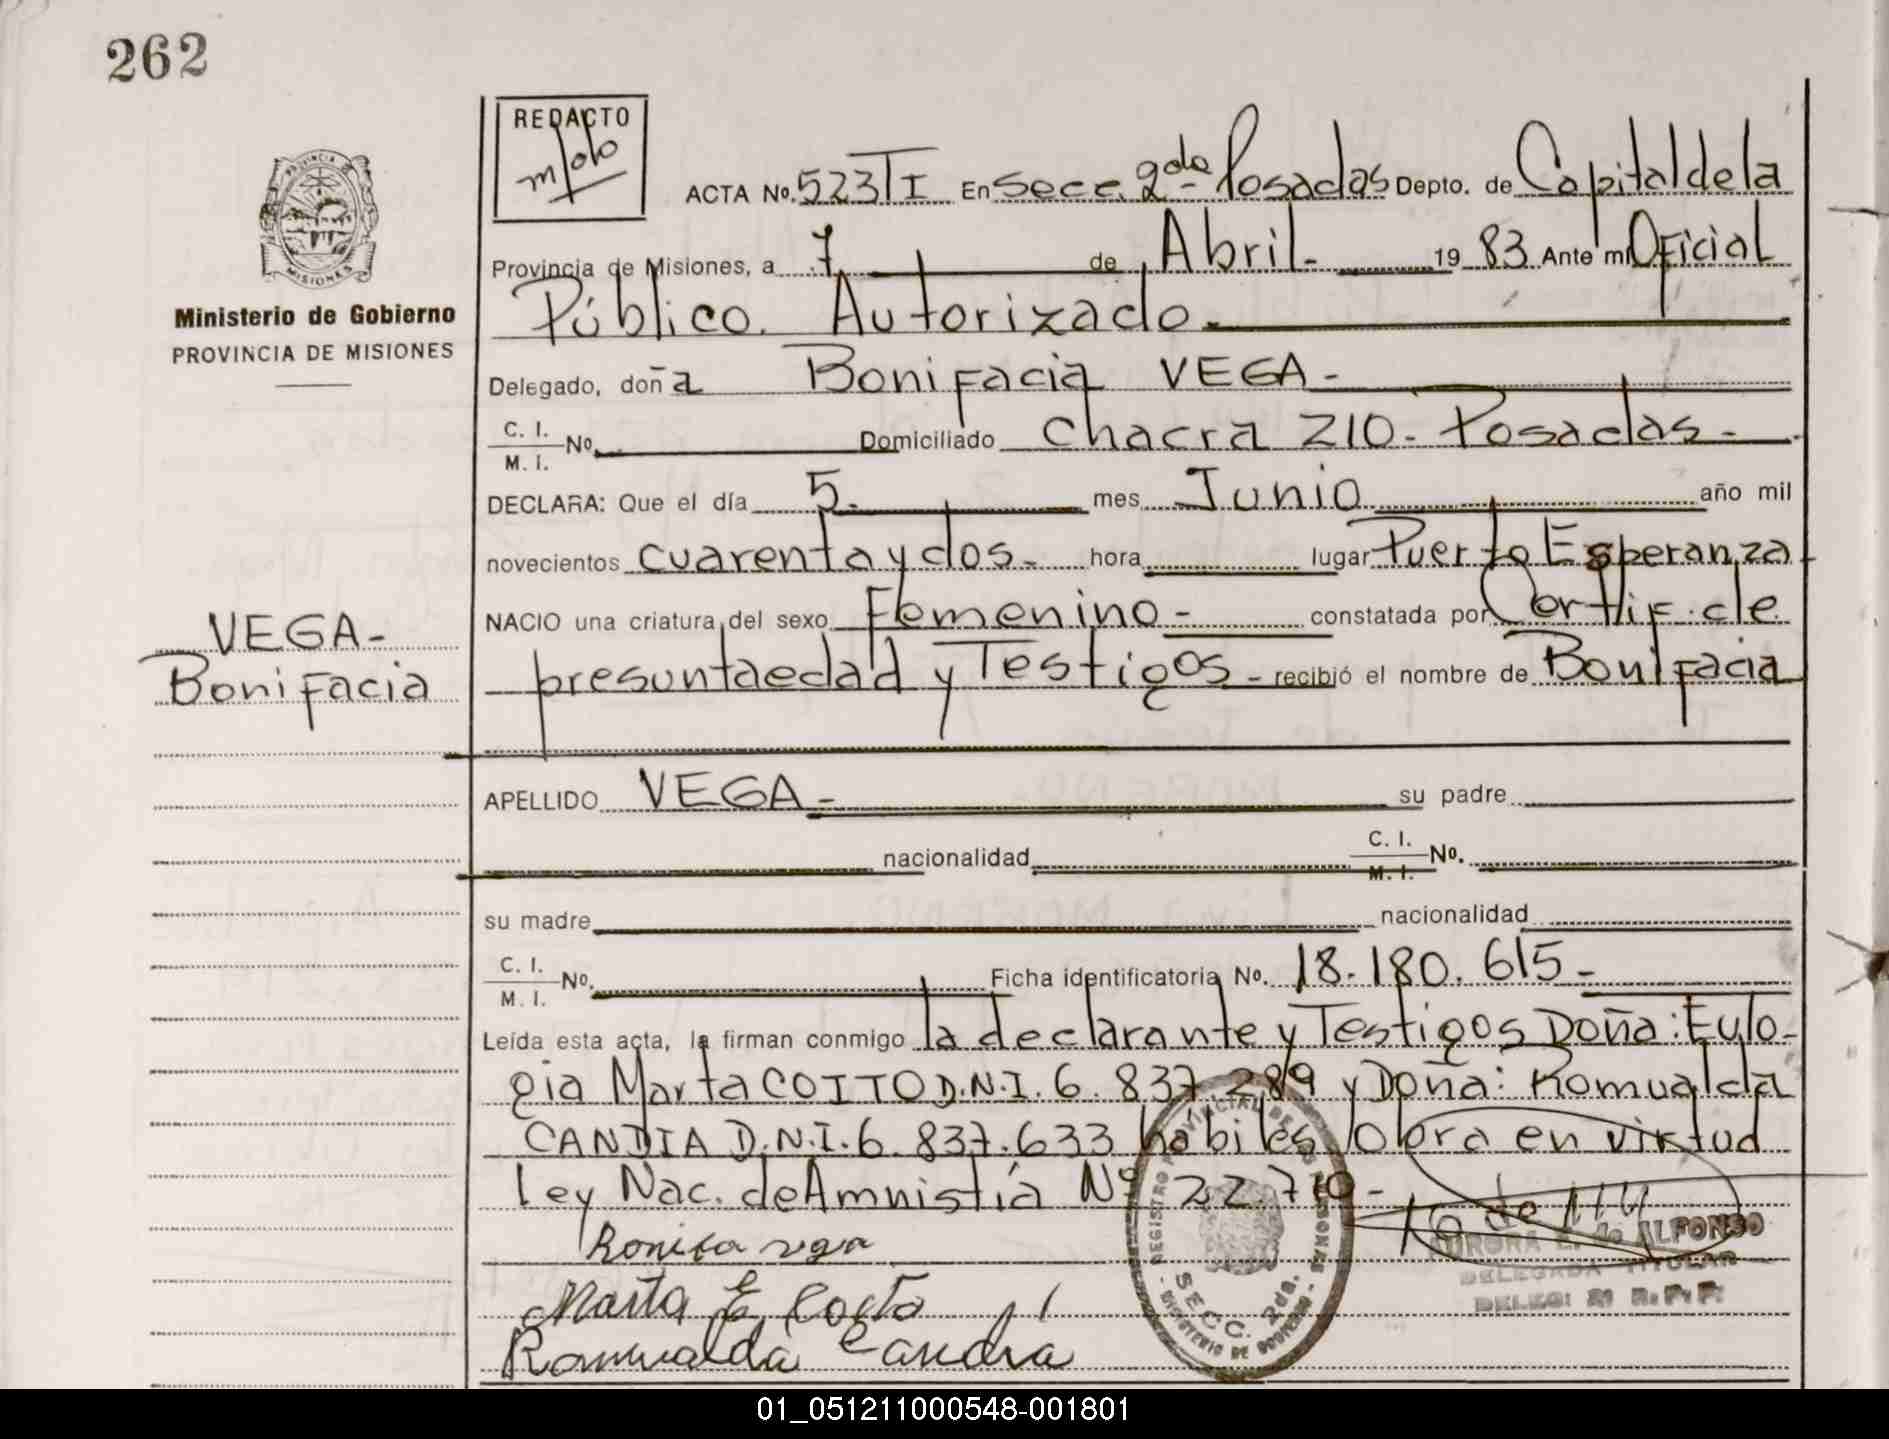 262
REDACTO
ACTA No. 523 T I En Secc. 2da. Posadas Depto. de Capital de la
PROVINCIA
MISIONES
Provincia de Misiones, a 7 de Abril- 1983 Ante mi Oficial
Ministerio de Gobierno
PROVINCIA DE MISIONES
Público. Autorizado.-
Delegado, doña Bonifacia VEGA-
C. I.
M. I. No. Domiciliado Chacra 210- Posadas-
DECLARA: Que el día 5. mes Junio año mil
novecientos cuarenta y dos- hora lugar Puerto Esperanza
NACIO una criatura del sexo Femenino- constatada por Certif. de
VEGA-
Bonifacia
presunta edad y Testigos- recibió el nombre de Bonifacia
APELLIDO VEGA- su padre
nacionalidad C. I.
M. I. No.
su madre nacionalidad
C. I.
M. I. No. Ficha identificatoria No. 18.180.615-
Leída esta acta, la firman conmigo la declarante y Testigos Doña: Eulo-
gia Marta COITTO D.N.I. 6.837.289 y Doña: Romualda
CANDIA D.N.I. 6.837.633 hábiles, lobra en virtud
Ley Nac. de Amnistía Nº 22.710-
Marta E. Coito
Romualda Candia
REGISTRO PROVINCIAL DE LAS PERSONAS
SECC. 2da.
MINISTERIO DE GOBIERNO
AURORA E. de ALFONSO
DELEGADA TITULAR
DELEG: 2ª R. P. P.
01_051211000548-001801